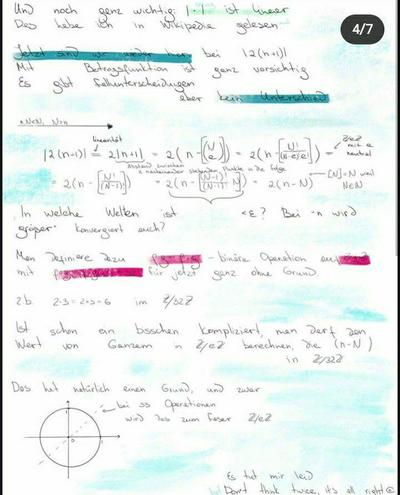 Und noch ganz wichtig: |·| ist linear
Das habe ich in Wikipedia gelesen
4/7
Jetzt sind wir wieder hier bei |2(n+1)|
Mit Betragsfunktion ist ganz vorsichtig
Es gibt Fallunterscheidungen
aber kein Unterschied
n∈N, N>n
Linearität
|2(n-1)| = 2|n+1| = 2(n-[N e]) = 2(n-[N! (N-e)!e!]) =
mit e
neutral
= 2(n-[N! (N-1)!]) = 2(n-[(N-1)! (N-1)! N]) = 2(n-N)
[N]=N weil
N∈N
In welche Welten ist <ε? Bei -n wird
größer konvergiert auch?
Man definiere dazu - binäre Operation
mit für jetzt ganz ohne Grund
z.b. 2·3=2+3=6 im Z/32Z
Ist schon ein bisschen kompliziert, man darf den
Wert von Ganzem in Z/eZ berechnen, die (n-N)
in Z/32Z
Das hat natürlich einen Grund, und zwar
bei ss Operationen
wird das zum Faser Z/eZ
Es tut mir leid
Don't think twice, it's all right